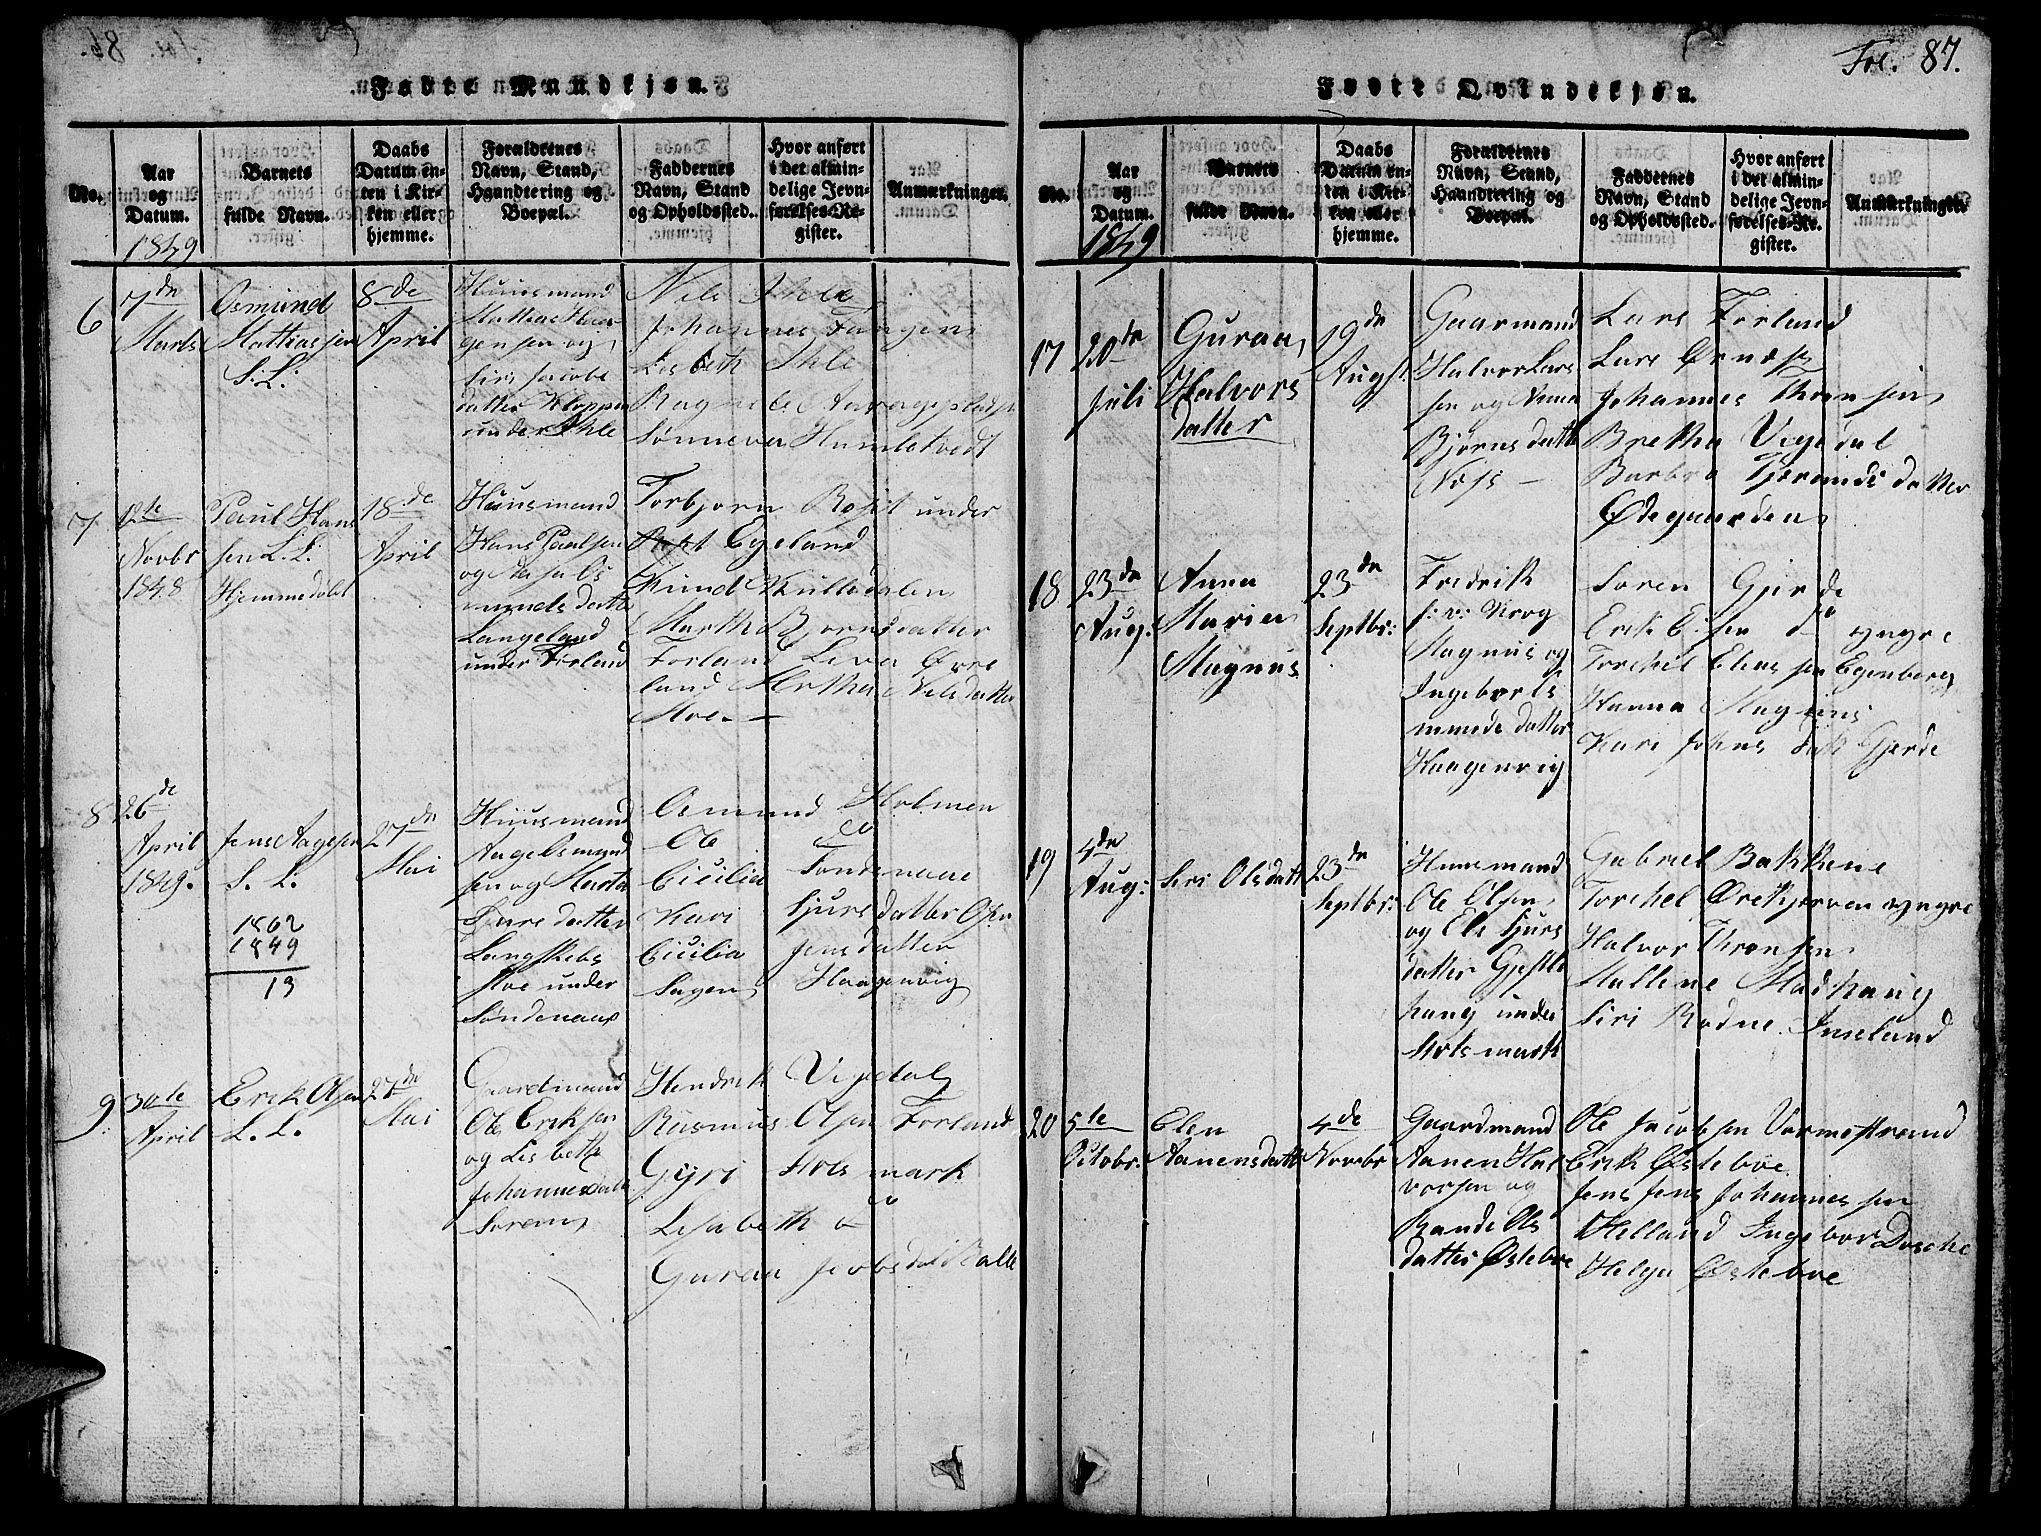 Fol. 87.
Fødte Mandkjøn.
No.
Aar
og
Datum.
1849
Barnets
fulde Navn.
Daabs
Datum en-
ten i Kir-
ken eller
hjemme.
Forældrenes
Navn, Stand,
Haandtering og
Boepæl.
Faddernes
Navn, Stand
og Opholdssted.
Hvor anført
i det almin-
delige Jevn-
førelses-Re-
gister.
Anmærkninger.
6
7de
Marts
Osmund
Mathiassen
S. L.
8de
April
Huusmand
Mathias
gensen og
Siri Jacobs
datter Kloppen
under Ihle
Nils Ihle
Johannes Tungem
Lisbeth Ihle
Ragnele
Sønneva Humlekvedt
7
12te
Novbr
1848
Paul Han
sen L. L.
Hjemmedøbt
18de
April
Huusmand
Hans Paulsen
og Aasa Os
munds datter
Langeland
under Førland
Torbjørn under
Egeland
Knud Kulledalen
Martha Bjørnsdatter
Førland Liva Øvre
land Martha Nilsdatter
Moe
8
26de
April
1849.
Jens Aagesen
S. L.
1862
1849
13
27de
Mai
Huusmand
Aagesmund
sen og Marta
Sjursdatter
Langskebs
Moe under
Søndenaae
Osmund Holmen
Ole do
Cicilia Søndenaae
Kari Sjursdatter
Cicilia Jensdatter
Sagen Haagenvig
9.
30te
April
Erik Olsen
L. L.
27de
Mai
Gaardmand
Ole Eriksen
og Lisbeth
Johannesdatter
Sørem
Hendrik Vigedal
Rasmus Olsen Førland
Gyri Holsmark
Lisabeth do
Guraa
Fødte Qvindekjøn.
No.
Aar
og
Datum.
1849
Barnets
fulde Navn.
Daabs
Datum en-
ten i Kir-
ken eller
hjemme.
Forældrenes
Navn, Stand,
Haandtering og
Boepæl.
Faddernes
Navn, Stand
og Opholdssted.
Hvor anført
i det almin-
delige Jevn-
førelses-Re-
gister.
Anmærkninger.
17
20de
Juli
Guraa
Halvors
datter
19de
Augst.
Gaarmand
Halvor Lars
sen og Anna
Bjørnsdatter
Næss
Lars Førland
Lars Ørnæs
Johannes Thronsen
Bretha Vigedal
Barbra datter
Ødegaarden
18
23de
Aug:
Anna
Maria
Magnus
23de
Septbr:
Fredrik
Magnus og
Ingebor
mmede datter
Haagenvig
Søren Gjerde
Erik E.sen do yngre
Torchel Eliassen Egenberg
Hanna Magnus
Kari Johns datt Gjerde
19
4de
Aug:
Siri Olsdatt
23de
Septbr:
Huusmand
Ole Olsen
og Eli Sjurs
datter
haug under
Holsmark
Gabriel Bakkene
Torchel yngre
Halvor Thronsen
Mallene Madhaug
Siri Rødne Imeland
20
5te
Octobr.
Elen
Aanensdatt
4de
Novebr
Gaardmand
Aanen Hal
vorsen og
Rande Ols
datter Østeboe
Ole Jacobsen Vormestrand
Erik Østeboe
Jens Jens Johannessen
Helland Ingebor Dreche
Helga Østeboe